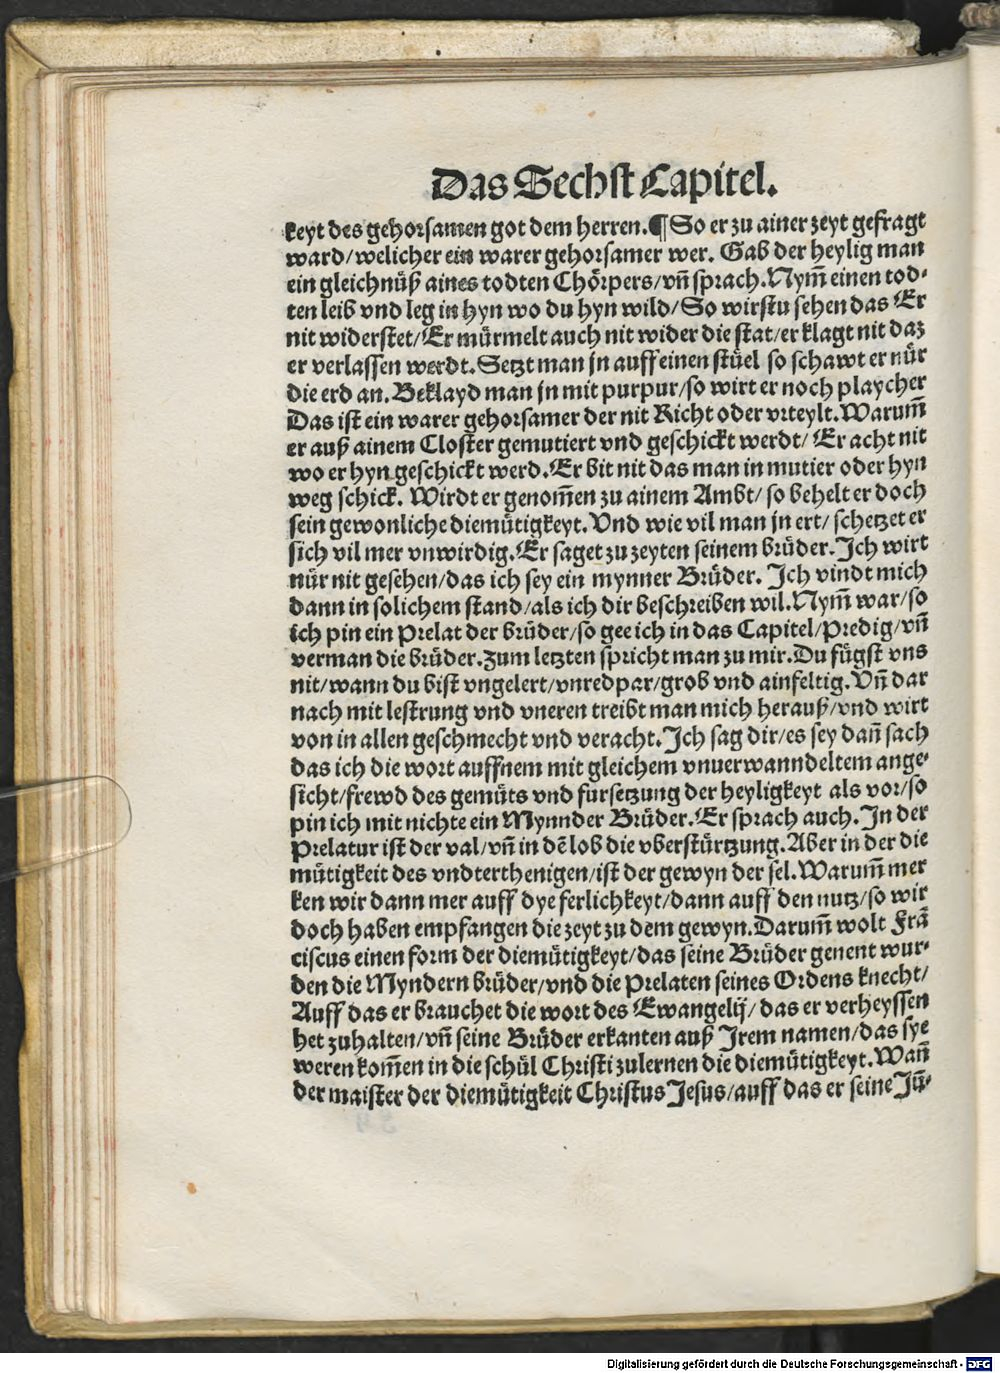 Das Sechst Capitel.
keyt des gehorsamen got dem herren.¶ So er zu ainer zeyt gefragt
ward/welicher ein warer gehorsamer wer. Gab der heylig man
ein gleichnüß aines todten Chörpers/vn̄ sprach. Nym̄ einen tod⸗
ten leib vnd leg in hyn wo du hyn wild/So wirstu sehen das Er
nit widerstet/Er mürmelt auch nit wider die stat/er klagt nit daz
er verlassen werdt. Setzt man jn auff einen stüel so schawt er nür
die erd an. Beklayd man jn mit purpur/so wirt er noch playcher
Das ist ein warer gehorsamer der nit Richt oder vrteylt. Warum̄
er auß ainem Closter gemutiert vnd geschickt werdt/ Er acht nit
wo er hyn geschickt werd. Er bit nit das man in mutier oder hyn
weg schick. Wirdt er genom̄en zu ainem Ambt/ so behelt er doch
sein gewonliche diemütigkeyt. Vnd wie vil man jn ert/ schetzet er
sich vil mer vnwirdig. Er saget zu zeyten seinem brüder. Ich wirt
nür nit gesehen/das ich sey ein mynner Brüder. Ich vindt mich
dann in solichem stand/als ich dir beschreiben wil. Nym̄ war/so
ich pin ein Prelat der brüder/so gee ich in das Capitel/Predig/vn̄
verman die brüder. Zum letzten spricht man zu mir. Du fügst vns
nit/wann du bist vngelert/vnredpar/grob vnd ainfeltig. Vn̄ dar
nach mit lestrung vnd vneren treibt man mich herauß/vnd wirt
von in allen geschmecht vnd veracht. Ich sag dir/es sey dan̄ sach
das ich die wort auffnem mit gleichem vnuerwanndeltem ange⸗
sicht/frewd des gemüts vnd fursetzung der heyligkeyt als vor/so
pin ich mit nichte ein Mynnder Brüder. Er sprach auch. In der
Prelatur ist der val/vn̄ in dē lob die vberstürtzung. Aber in der die
mütigkeit des vndterthenigen/ist der gewyn der sel. Warum̄ mer
ken wir dann mer auff dye ferlichkeyt/dann auff den nutz/so wir
doch haben empfangen die zeyt zu dem gewyn. Darum̄ wolt Frā
ciscus einen form der diemütigkeyt/das seine Brüder genent wur⸗
den die Myndern brüder/vnd die Prelaten seines Ordens knecht/
Auff das er brauchet die wort des Ewangelij/ das er verheyssen
het zuhalten/vn̄ seine Brüder erkanten auß Irem namen/das sye
weren kom̄en in die schül Christi zulernen die diemütigkeyt. Wan̄
der maister der diemütigkeit Christus Jesus/auff das er seine Jü⸗
Digitalisierung gefördert durch die Deutsche Forschungsgemeinschaft - DFG